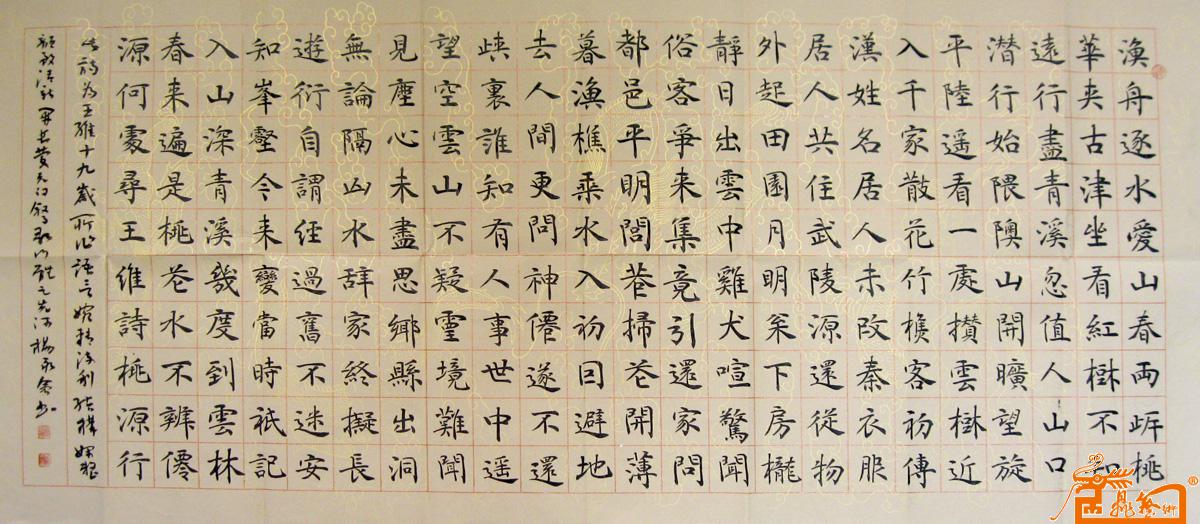 漁舟逐水愛山春兩岍桃
華夾古津坐看紅樹不知
遠行盡青溪忽值人山口
潛行始隈隩山開曠望旋
平陸遥看一處攢雲樹近
入千家散花竹樵客初傳
漢姓名居人未改秦衣服
居人共住武陵源還從物
外起田園月明枀下房櫳
靜日出雲中雞犬喧驚聞
俗客爭来集竟引還家問
都邑平明閭巷掃花開薄
暮漁樵乘水入初因避地
去人間更問神僊遂不還
峽裏誰知有人事世中遥
望空雲山不疑靈境難聞
見塵心未盡思鄉縣出洞
無論隔山水辭家終擬長
遊衍自謂經過舊不迷安
知峯壑今来變當時祇記
入山深青溪幾度到雲林
春来遍是桃花水不辨僊
源何處尋王維詩桃源行
此詩為王維十九歲所作語言